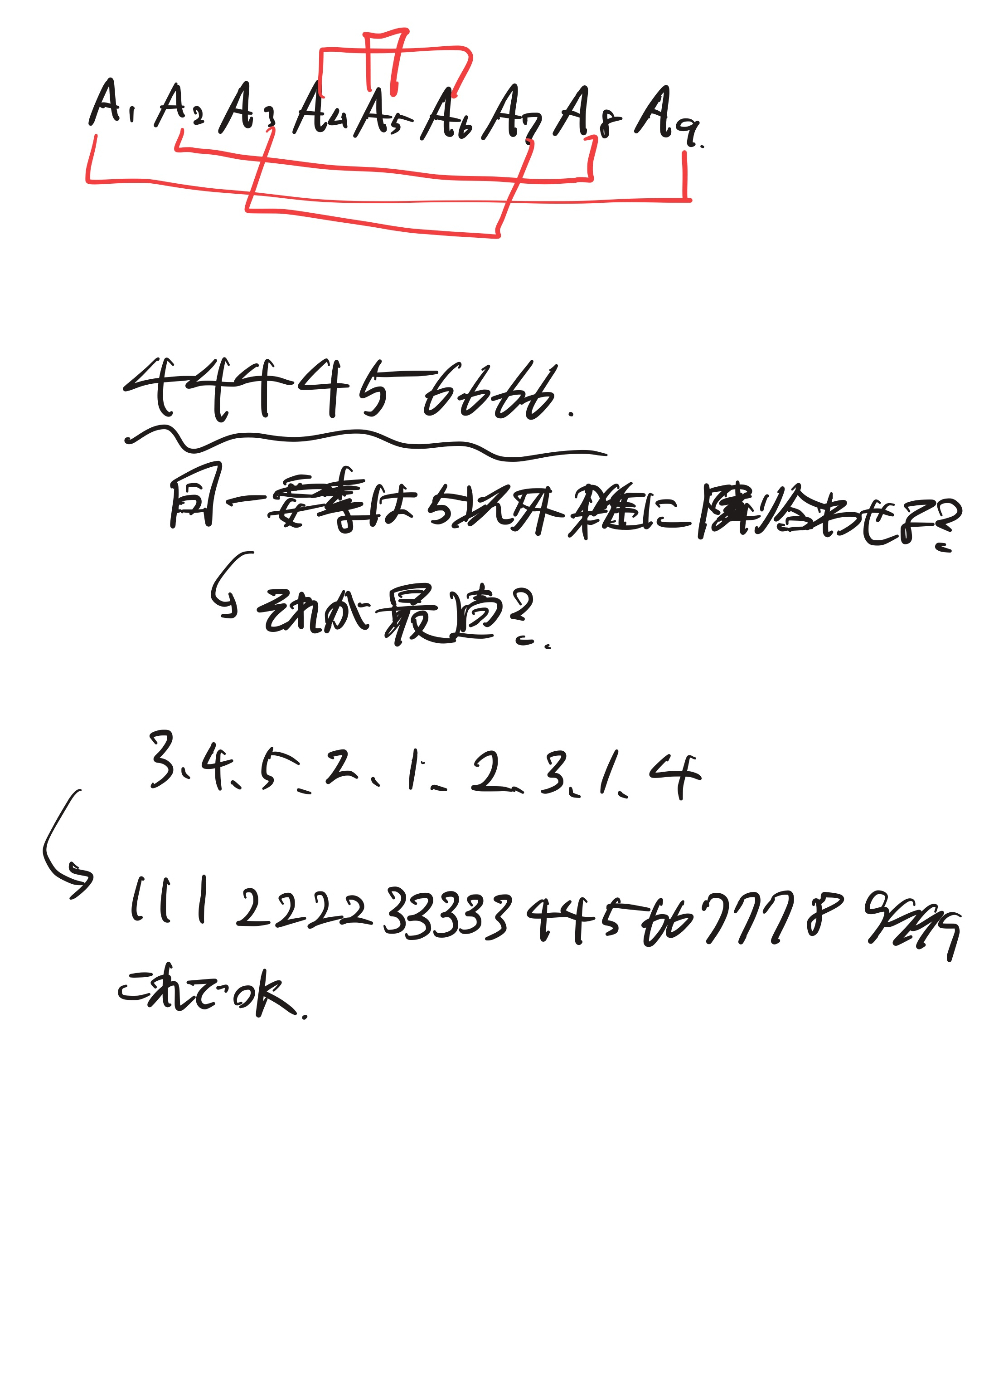 A₁ A₂ A₃ A₄ A₅ A₆ A₇ A₈ A₉.
444456666.
同一要素は5以外 に隣合わせで?
それが最適?
3、4、5、2、1、2、3、1、4
111 2222 33333 44 5 66 777 8 9999
これでOK.